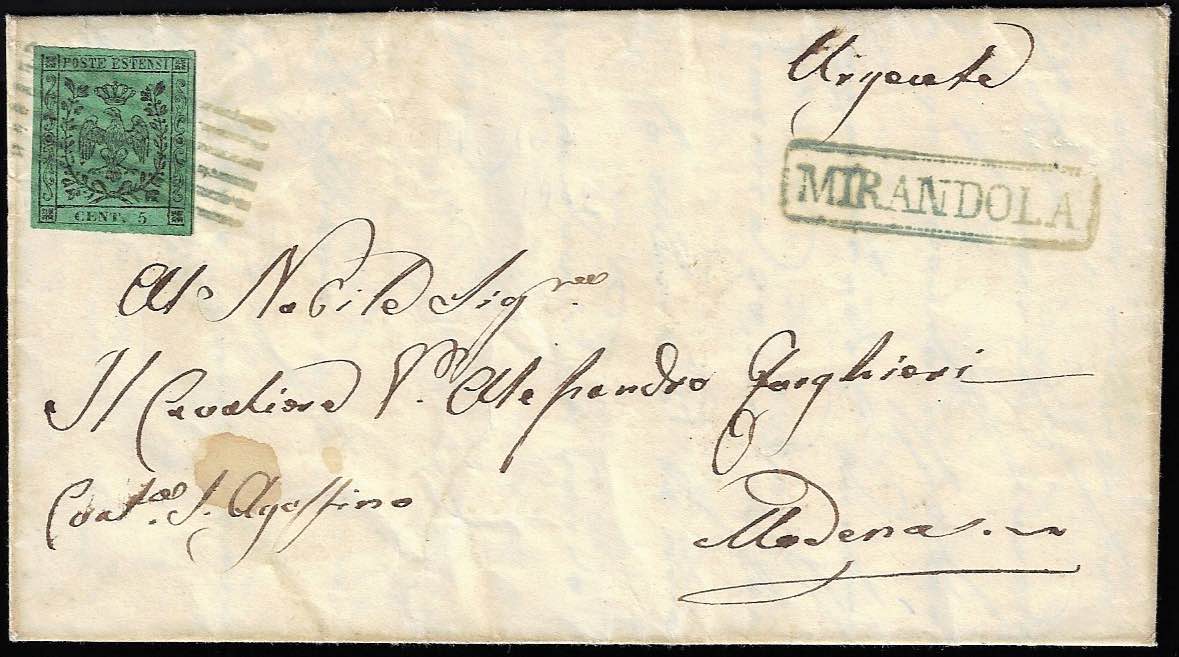 POSTE ESTENSI
CENT. 5
Urgente
MIRANDOLA
Al Nobile Sig.re
Il Cavaliere Alessandro
Cont.a S. Agostino
Modena.